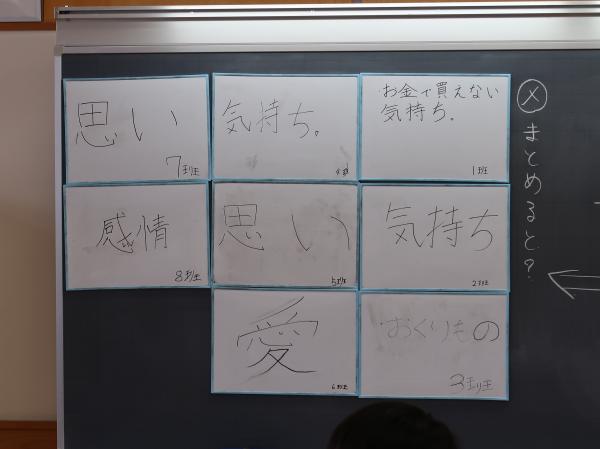 ㋱ まとめると?
お金で買えない
気持ち。
1班
気持ち
2班
おくりもの
3班
気持ち。
4班
思い
5班
愛
6班
思い
7班
感情
8班